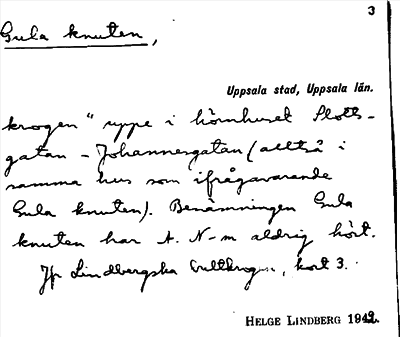 3
Gula knuten,
Uppsala stad, Uppsala län.
krogen" uppe i hörnhuset Slotts-
gatan - Johannesgatan (alltså i
samma hus som ifrågavarande
Gula knuten). Benämningen Gula
knuten har A. N-m aldrig hört.
Jfr Lindbergska kort 3.
HELGE LINDBERG 1942.